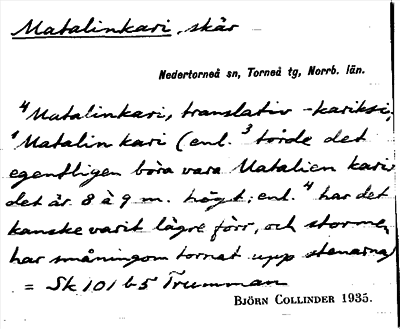 Matalinkari, skär
Nedertorneå sn, Torneå tg, Norrb. län.
4 Matalinkari, translativ -kariksi;
1 Matalin kari (enl. 3 torde det
egentligen böra vara Matalien kari;
det är 8 à 9 m. högt; enl. 4 har det
kanske varit lägre förr, och stormen
har småningom tornat upp stenarna)
= Sk 101 b5 Trumman
BJÖRN COLLINDER 1935.